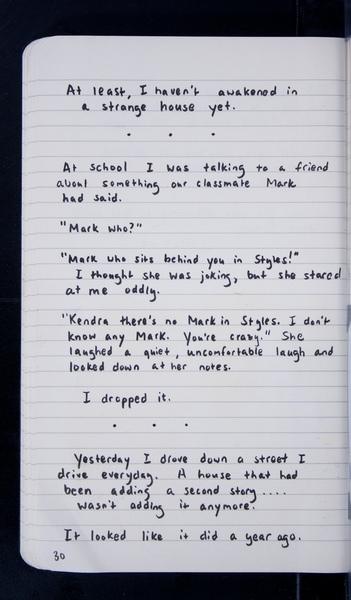 At least, I haven't awakened in
a strange house yet.
. . .
At school I was talking to a friend
about something our classmate Mark
had said.
"Mark who?"
"Mark who sits behind you in Styles!"
I thought she was joking, but she stared
at me oddly.
"Kendra there's no Mark in Styles. I don't
know any Mark. You're crazy." She
laughed a quiet, uncomfortable laugh and
looked down at her notes.
I dropped it.
. . .
Yesterday I drove down a street I
drive everyday. A house that had
been adding a second story....
wasn't adding it anymore.
It looked like it did a year ago.
30